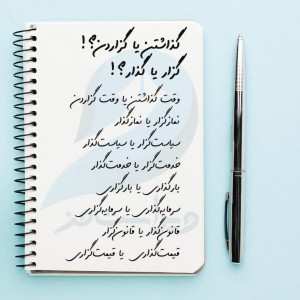 گذاشتن یا گزاردن؟!
گزار یا گذار؟!
وقت گذاشتن یا وقت گزاردن
نمازگزار یا نمازگذار
سیاست‌گزار یا سیاست‌گذار
خدمت‌گزار یا خدمت‌گذار
بارگذاری یا بارگزاری
سرمایه‌گذاری یا سرمایه‌گزاری
قانون‌گذار یا قانون‌گزار
قیمت‌گذاری یا قیمت‌گزاری